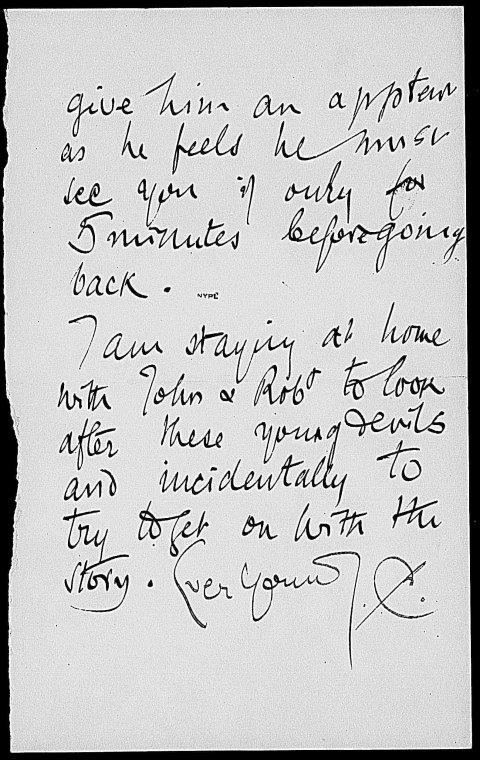 give him an apptent
as he feels he must
see you if only for
5 minutes before going
back.
NYPL
I am staying at home
with John & Robt to look
after these young devils
and incidentally to
try to get on with the
story. Ever Yours J.C.